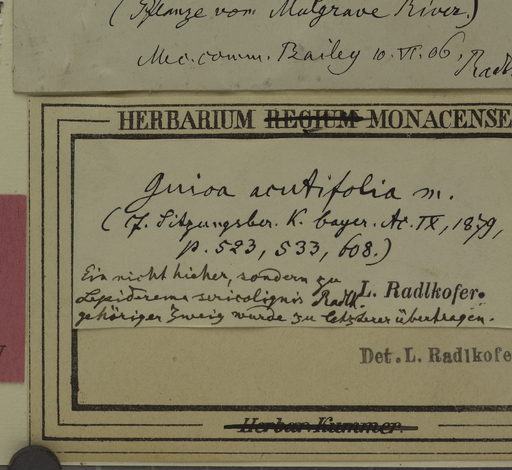 (Pflanze vom Mulgrave River.)
Mec. comm. Bailey 10. VI. 06, Radl
HERBARIUM REGIUM MONACENSE
Guioa acutifolia m.
(f. Sitzungsber. K. bayer. Ac. IX, 1879,
p. 523, 533, 608.)
Ein nicht hieher, sondern zu
Lepiderema sericolignis Radlk.
gehöriger Zweig wurde zu letzterer übertragen.
L. Radlkofer.
Det. L. Radlkofe
Herbar. Kummer.